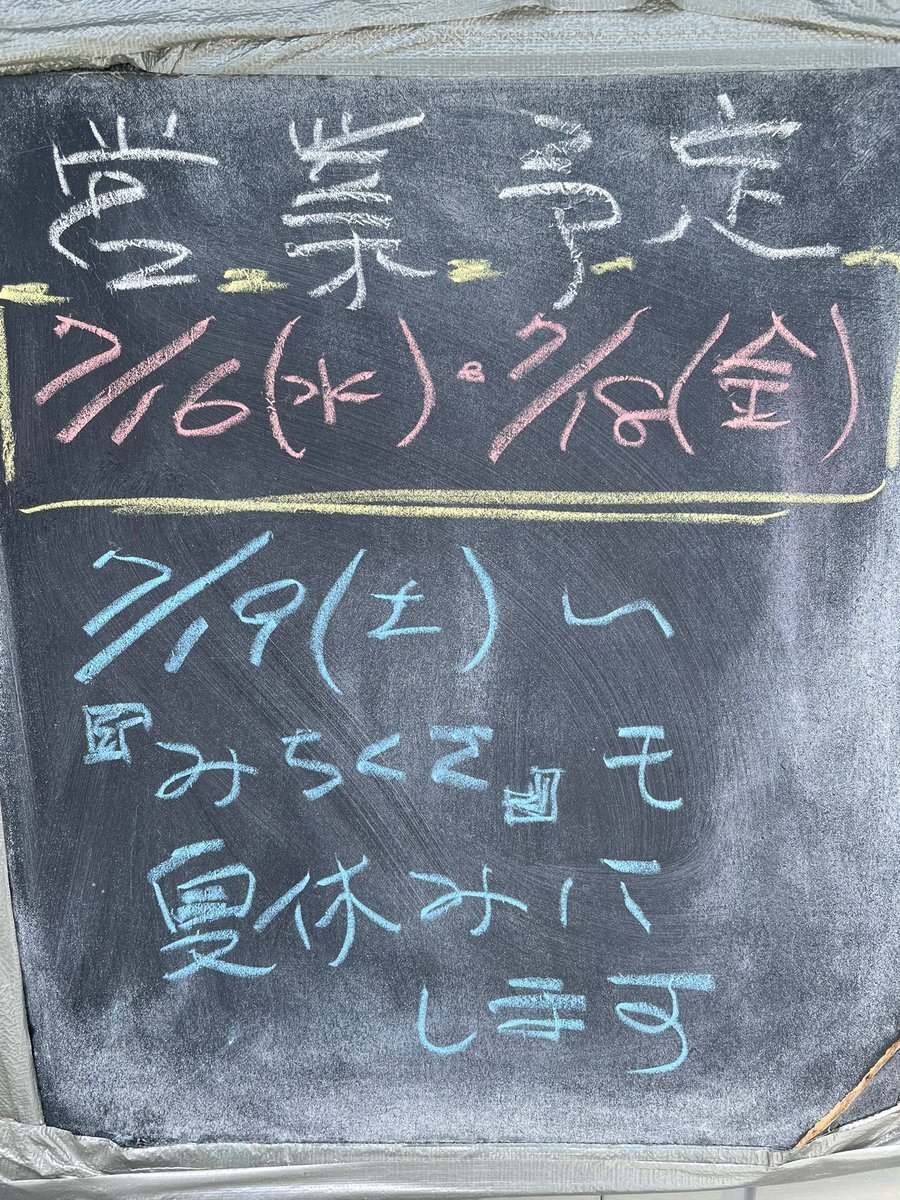 営業予定
7/16(水)・7/18(金)
7/19(土)〜
『みちくさ』モ
夏休みに
します